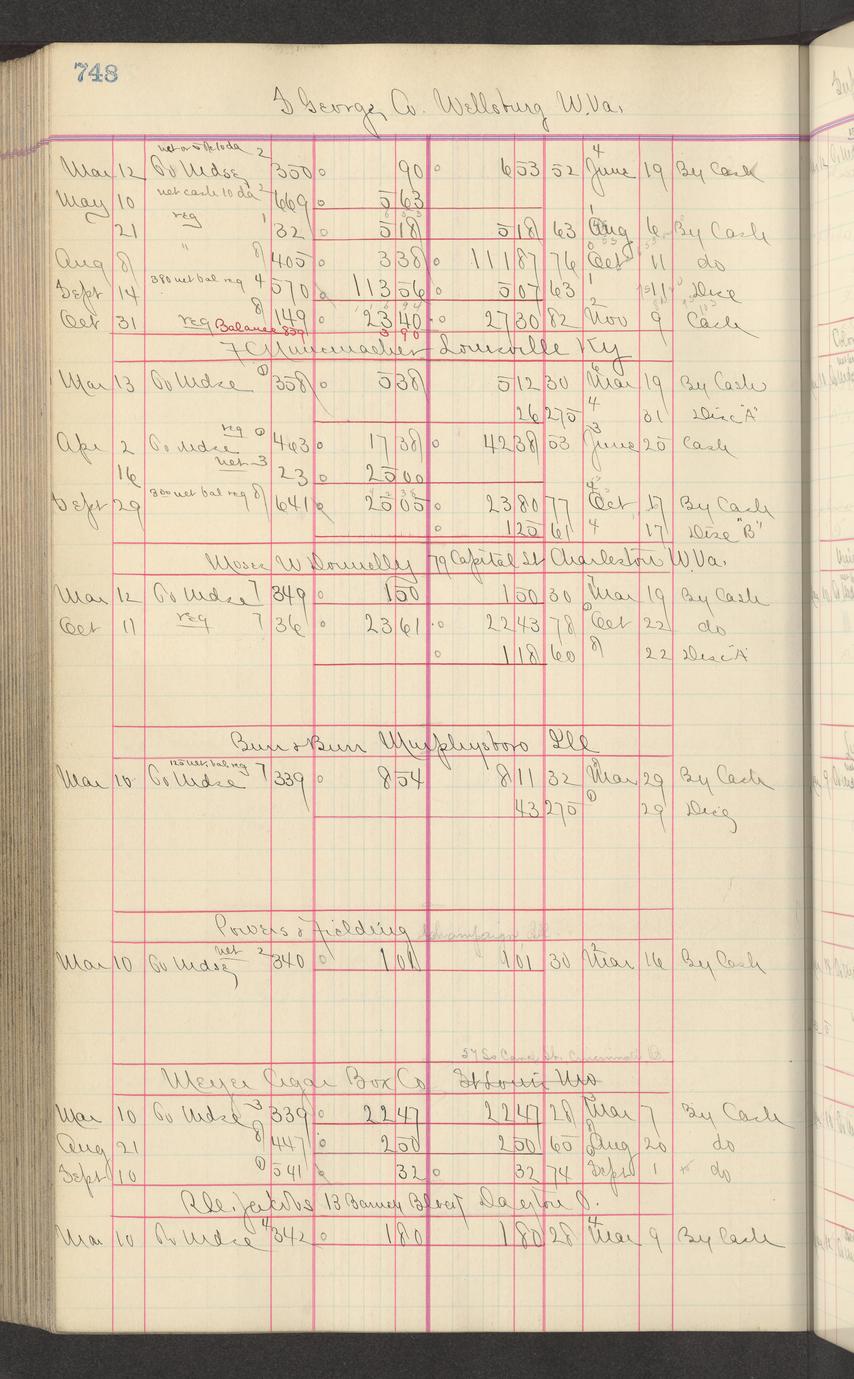 748
George Co. Wellsburg W.Va.
Mar 12 To Mdse 2 350 90 653 52 4 June 19 By Cash
May 10 net cash 10 da 2 669 5 63
21 reg 1 32 5 18 5 18 63 1 Aug 6 By Cash
Aug 8 " 8 405 3 38 111 87 76 Oct 11 do
Sept 14 380 net bal reg 4 570 113 56 5 07 63 1 11 Disc
Oct 31 reg 8 149 23 40 27 30 82 2 Nov 9 Cash
Balance 859 3 90
Louisville Ky
Mar 13 To Mdse 1 358 5 38 5 12 30 Mar 19 By Cash
26 275 4 31 Disc "A"
Apr 2 To Mdse reg 463 17 38 42 38 53 3 June 25 Cash
16 net 3 23 25 00
Sept 29 300 net bal reg 8 641 25 05 23 80 77 4 Oct 17 By Cash
1 25 61 4 17 Disc "B"
Moses W Donnelly 79 Capital St Charleston W.Va.
Mar 12 To Mdse 7 349 1 50 1 50 30 Mar 19 By Cash
Oct 11 reg 7 36 23 61 22 43 78 Oct 22 do
1 18 60 8 22 Disc "A"
Burr & Burr Murphysboro Ill
Mar 10 To Mdse 125 net bal reg 7 339 8 54 8 11 32 Mar 29 By Cash
43 275 29 Disc
Powers & Fielding Champaign Ill
Mar 10 To Mdse net 2 340 1 01 1 01 30 2 Mar 16 By Cash
27 So Canal St. Cincinnati O.
Meyer Cigar Box Co St Louis Mo
Mar 10 To Mdse 3 339 22 47 22 47 28 Mar 7 By Cash
Aug 21 8 447 2 50 2 50 65 Aug 20 do
Sept 10 541 32 32 74 Sept 1 do
Jacobs 13 Barney Block Dayton O.
Mar 10 To Mdse 4 342 1 80 1 80 28 4 Mar 9 By Cash